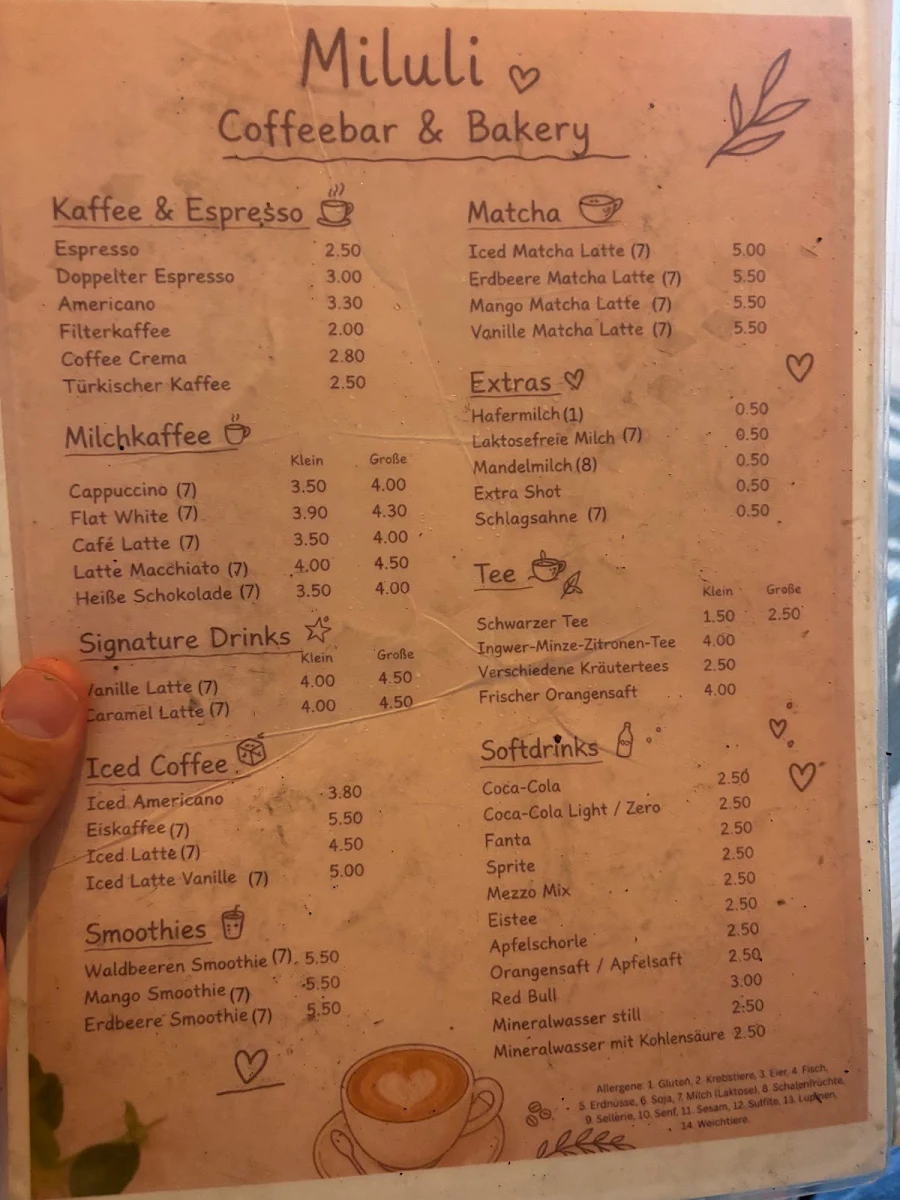 Miluli
Coffeebar & Bakery
Kaffee & Espresso
Espresso 2.50
Doppelter Espresso 3.00
Americano 3.30
Filterkaffee 2.00
Coffee Crema 2.80
Türkischer Kaffee 2.50
Milchkaffee
Klein Große
Cappuccino (7) 3.50 4.00
Flat White (7) 3.90 4.30
Café Latte (7) 3.50 4.00
Latte Macchiato (7) 4.00 4.50
Heiße Schokolade (7) 3.50 4.00
Signature Drinks
Klein Große
Vanille Latte (7) 4.00 4.50
Caramel Latte (7) 4.00 4.50
Iced Coffee
Iced Americano 3.80
Eiskaffee (7) 5.50
Iced Latte (7) 4.50
Iced Latte Vanille (7) 5.00
Smoothies
Waldbeeren Smoothie (7) 5.50
Mango Smoothie (7) 5.50
Erdbeere Smoothie (7) 5.50
Matcha
Iced Matcha Latte (7) 5.00
Erdbeere Matcha Latte (7) 5.50
Mango Matcha Latte (7) 5.50
Vanille Matcha Latte (7) 5.50
Extras
Hafermilch (1) 0.50
Laktosefreie Milch (7) 0.50
Mandelmilch (8) 0.50
Extra Shot 0.50
Schlagsahne (7) 0.50
Tee
Klein Große
Schwarzer Tee 1.50 2.50
Ingwer-Minze-Zitronen-Tee 4.00
Verschiedene Kräutertees 2.50
Frischer Orangensaft 4.00
Softdrinks
Coca-Cola 2.50
Coca-Cola Light / Zero 2.50
Fanta 2.50
Sprite 2.50
Mezzo Mix 2.50
Eistee 2.50
Apfelschorle 2.50
Orangensaft / Apfelsaft 2.50
Red Bull 3.00
Mineralwasser still 2.50
Mineralwasser mit Kohlensäure 2.50
Allergene: 1. Gluten, 2. Krebstiere, 3. Eier, 4. Fisch,
5. Erdnüsse, 6. Soja, 7. Milch (Laktose), 8. Schalenfrüchte,
9. Sellerie, 10. Senf, 11. Sesam, 12. Sulfite, 13. Lupinen,
14. Weichtiere.